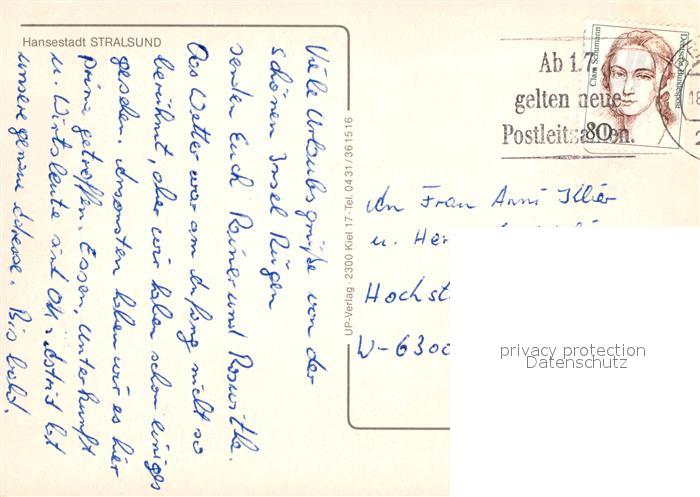 Hansestadt STRALSUND
Viele Urlaubsgrüße von der
schönen Insel Rügen
senden Euch Rainer und Roswitha.
Das Wetter war am Anfang nicht so
berühmt, aber wir haben schon einiges
gesehen. Ansonsten haben wir es hier
prima getroffen. Essen, Unterkunft
u. Wirtsleute sind OK. Astrid hat
unsere genaue Adresse. Bis bald.
UP-Verlag · 2300 Kiel 17 · Tel. 0431/361516
Ab 1.7.
gelten neue
Postleitzahlen.
Clara Schumann
Deutsche Bundespost
80
An Frau Anni Klier
u. Her
Hochst
W-6300
privacy protection
Datenschutz